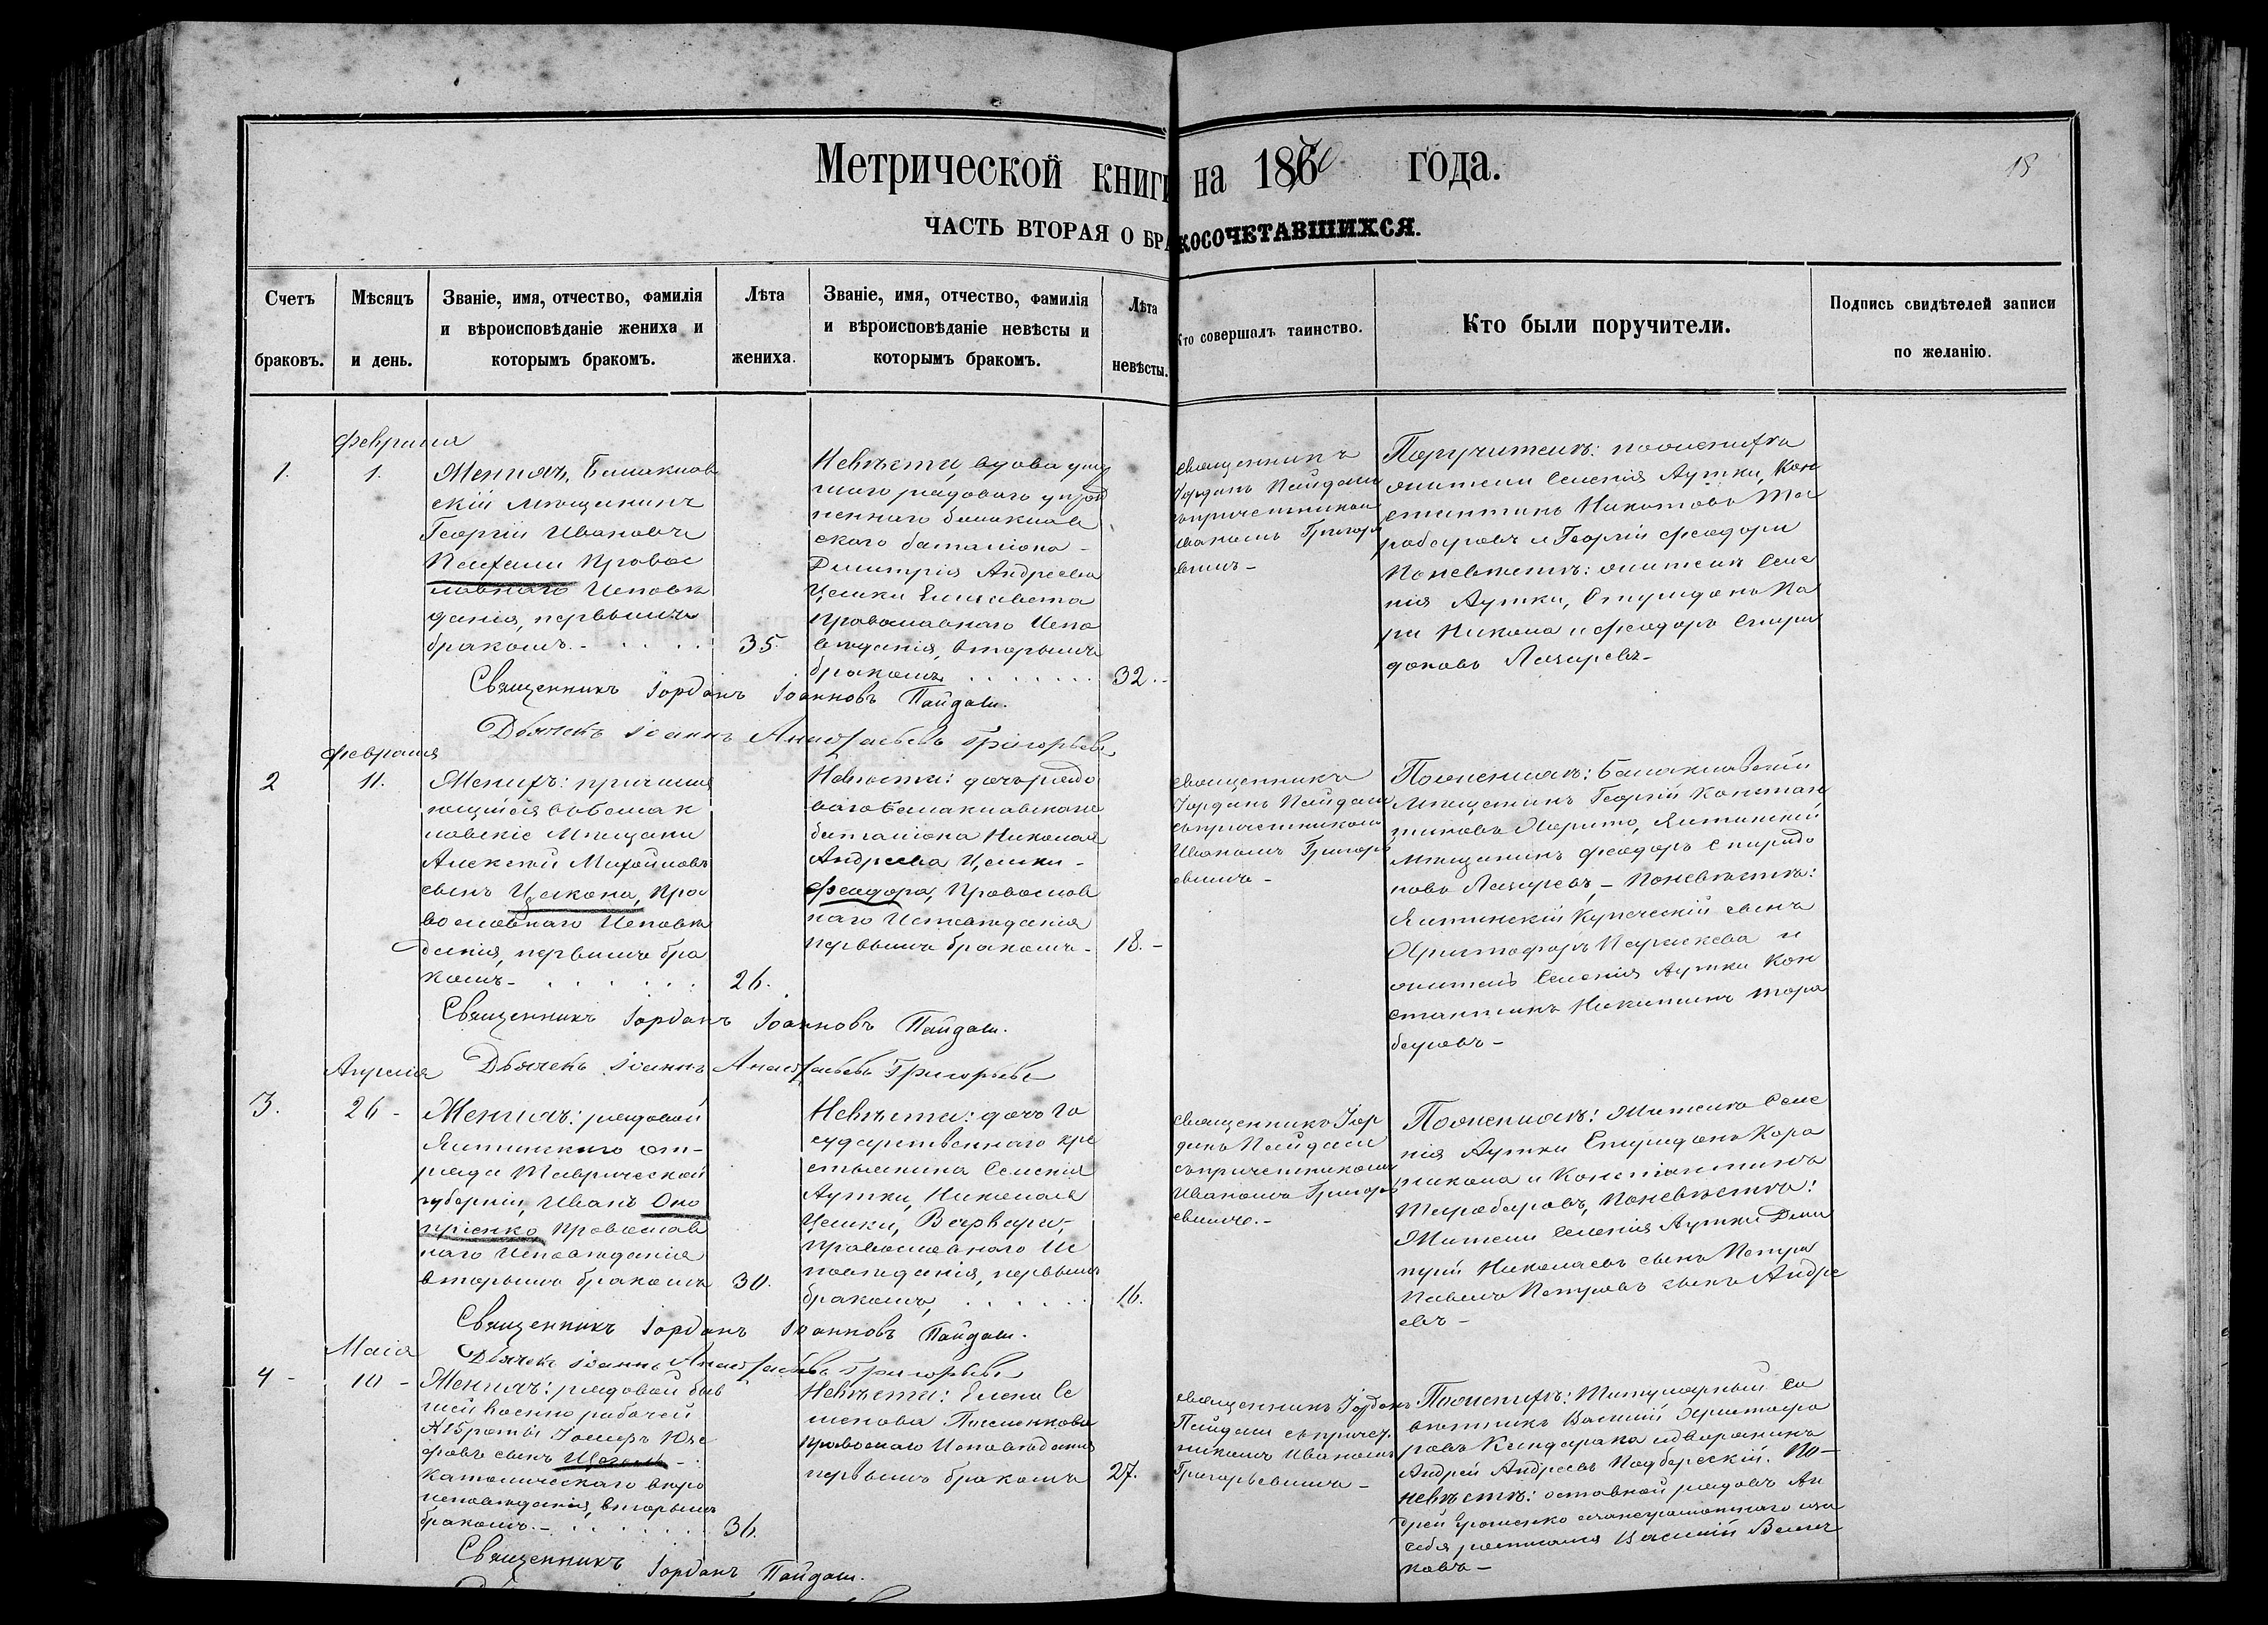 Метрической книги на 1870 года.
18
ЧАСТЬ ВТОРАЯ О БРАКОСОЧЕТАВШИХСЯ.
Счетъ браковъ.
Мѣсяцъ и день.
Званіе, имя, отчество, фамилія
и вѣроисповѣданіе жениха и
которымъ бракомъ.
Лѣта жениха.
Званіе, имя, отчество, фамилія
и вѣроисповѣданіе невѣсты и
которымъ бракомъ.
Лѣта невѣсты.
Кто совершалъ таинство.
Кто были поручители.
Подпись свидѣтелей записи
по желанію.
февраля
1.
1.
Женихъ, Балаклав
скій мѣщанинъ
Георгій Ивановъ
Правос
лавнаго Исповѣ
данія, первымъ
бракомъ.
35.
Невѣста, вдова
рядоваго
балаклав
скаго баталіона
Димитрія Андреева
Цакки Елисавета
православнаго Испо
вѣданія, вторымъ
бракомъ
32.
Священникъ
Іорданъ Пайдаси
съ причетникомъ
Иваномъ Григорь
евымъ
жители Селенія Аутки, Кон
стантинъ
и Георгій Феодори
По невѣстѣ: жители Селе
нія Аутки, Спиридонъ
Никола и Феодоръ Спири
доновъ Лазаревъ
Священникъ Іорданъ Іоанновъ Пайдаси.
Дьячекъ Іоаннъ Анастасьевъ Григорьевъ
февраля
2
11.
Женихъ: причисля
ющійся въ балак
лавскіе Мѣщани
Алексѣй Михайловъ
сынъ Цакона, Пра
вославнаго Исповѣ
данія, первымъ бра
комъ
26.
Невѣста: дочь рядо
ваго балаклавскаго
баталіона Николая
Андреева Цакки
Феодора, Православ
наго Исповѣданія
первымъ бракомъ
18.
Священникъ
Іорданъ Пайдаси
съ причетникомъ
Иваномъ Григорь
евымъ
По женихѣ: Балаклавскій
Мѣщанинъ Георгій Констан
тиновъ Ялтинскій
мѣщанинъ Феодоръ Спиридо
новъ Лазаревъ, По невѣстѣ:
Ялтинскій Купеческій сынъ
Христофоръ и
житель Селенія Аутки Кон
стантинъ Никитинъ
Священникъ Іорданъ Іоанновъ Пайдаси.
Дьячекъ Іоаннъ Анастасьевъ Григорьевъ
Апрѣля
3.
26
Женихъ: рядовой
Ялтинскаго от-
ряда Таврической
губерніи, Иванъ Оно
приенко Православ
наго Исповѣданія
вторымъ бракомъ
30.
Невѣста: дочь го
сударственнаго кре
стьянина Селенія
Аутки, Николая
Цакки, Варвара,
православнаго Ис
повѣданія, первымъ
бракомъ,
16.
Священникъ Іор
данъ Пайдаси
съ причетникомъ
Иваномъ Григорь
евымъ.
По женихѣ: Жители Селе
нія Аутки Спиридонъ Кара
никола и Константинъ
По невѣстѣ:
Жители Селенія Аутки Дми
трій Николаевъ сынъ Петра
Павелъ Петровъ сынъ Андре
евъ
Священникъ Іорданъ Іоанновъ Пайдаси.
Дьячекъ Іоаннъ Анастасьевъ Григорьевъ
Маія
4
10
Женихъ: рядовой быв
шей военно рабочей
№15 роты Іосифъ Юзе
фовъ сынъ
Католическаго вѣро
исповѣданія, вторымъ
бракомъ.
36.
Невѣста: Елена Се
менова
Православнаго Исповѣданія
первымъ бракомъ
27.
Священникъ Іорданъ
Пайдаси съ причет
никомъ Иваномъ
Григорьевымъ
По женихѣ: Титулярный Со
вѣтникъ Василій Христофо
ровъ Кандараки и дворянинъ
Андрей Андреевъ Подберескій. По
невѣстѣ: отставной рядовъ Ан
дрей Ярошенко а неграмотнаго за
себя росписался Василій
Священникъ Іорданъ Пайдаси.